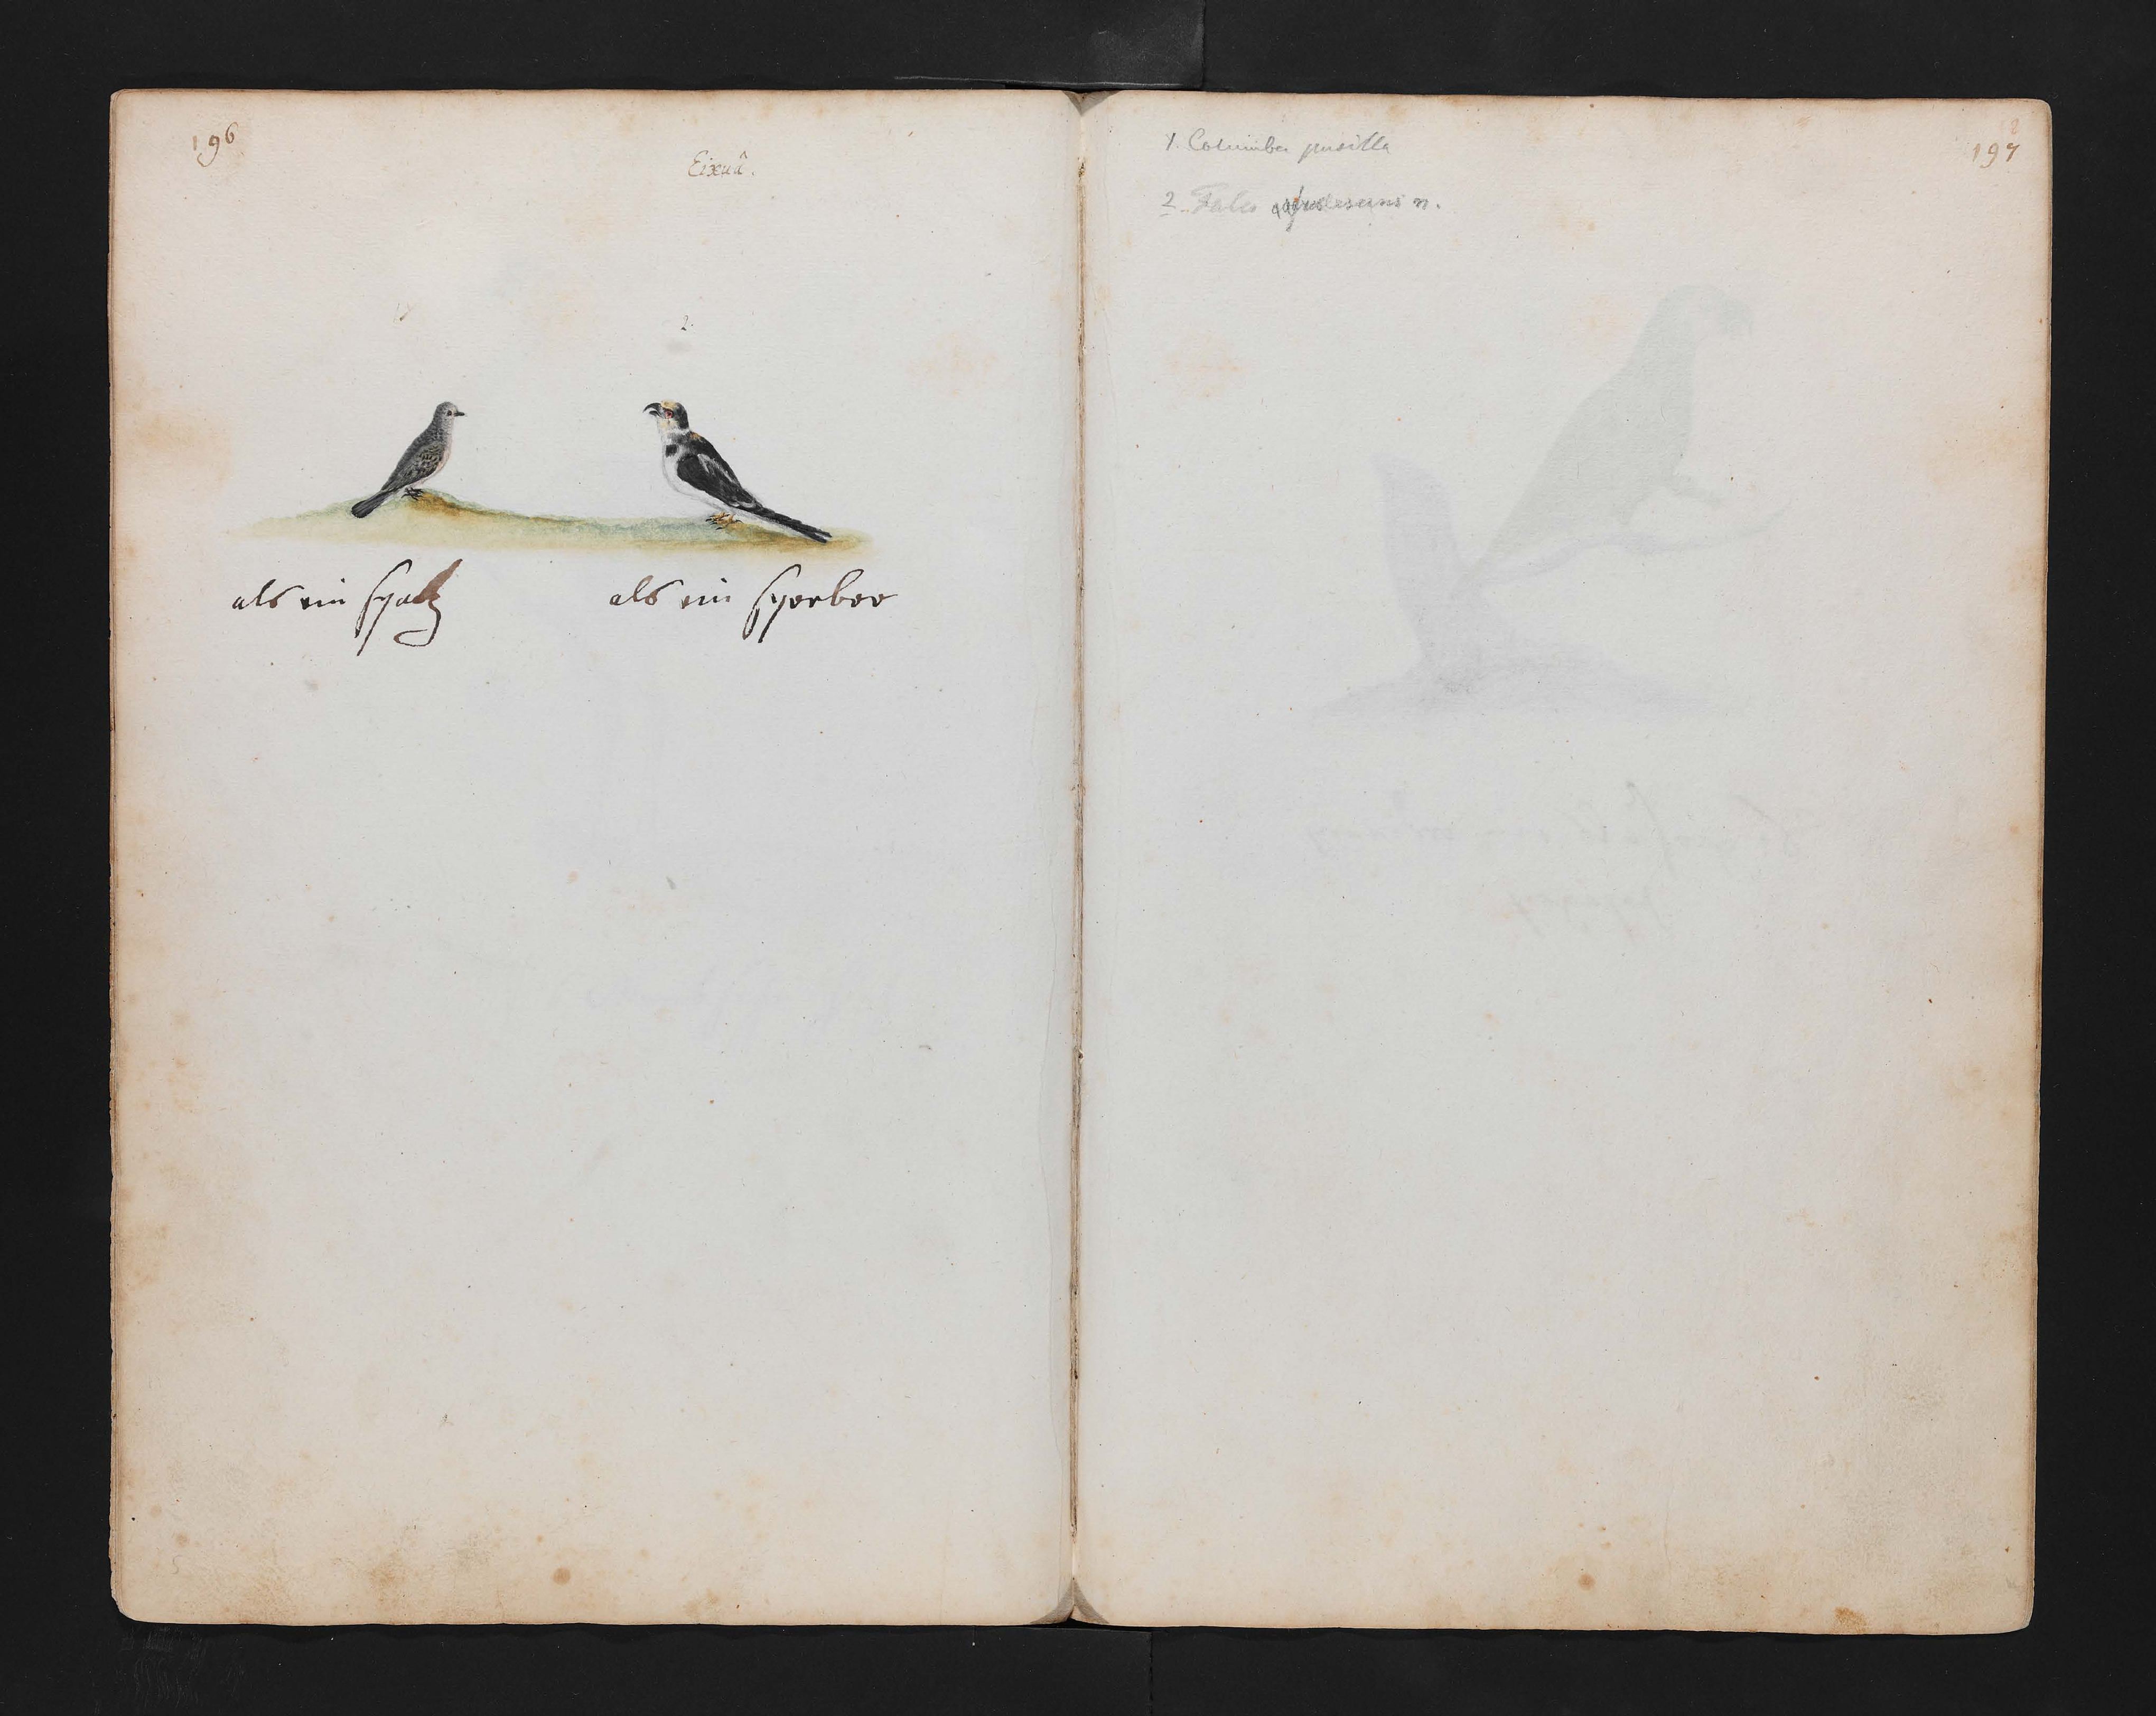 196
Eixuâ.
1
2.
als ein spatz
als ein sperber
1. Columba pusilla
2. Falco n.
197